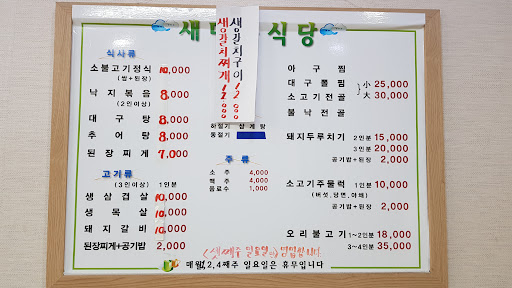 새 식당
생갈치구이 12,000
생갈치찌개 12,000
식사류
소불고기정식 10,000
(쌈+된장)
낙지볶음 8,000
(2인이상)
대구탕 8,000
추어탕 8,000
된장찌개 7,000
고기류
(3인이상) 1인분
생삼겹살 10,000
생목살 10,000
돼지갈비 10,000
된장찌개+공기밥 2,000
하절기 삼계탕
동절기
주류
소주 4,000
맥주 4,000
음료수 1,000
아구찜
대구뽈찜
소고기전골
불낙전골
小 25,000
大 30,000
돼지두루치기 2인분 15,000
3인분 20,000
공기밥+된장 2,000
소고기주물럭 1인분 10,000
(버섯,당면,야채)
공기밥+된장 2,000
오리불고기 1~2인분 18,000
3~4인분 35,000
(셋째주 일요일은) 영업합니다.
매월1,2,4째주 일요일은 휴무입니다